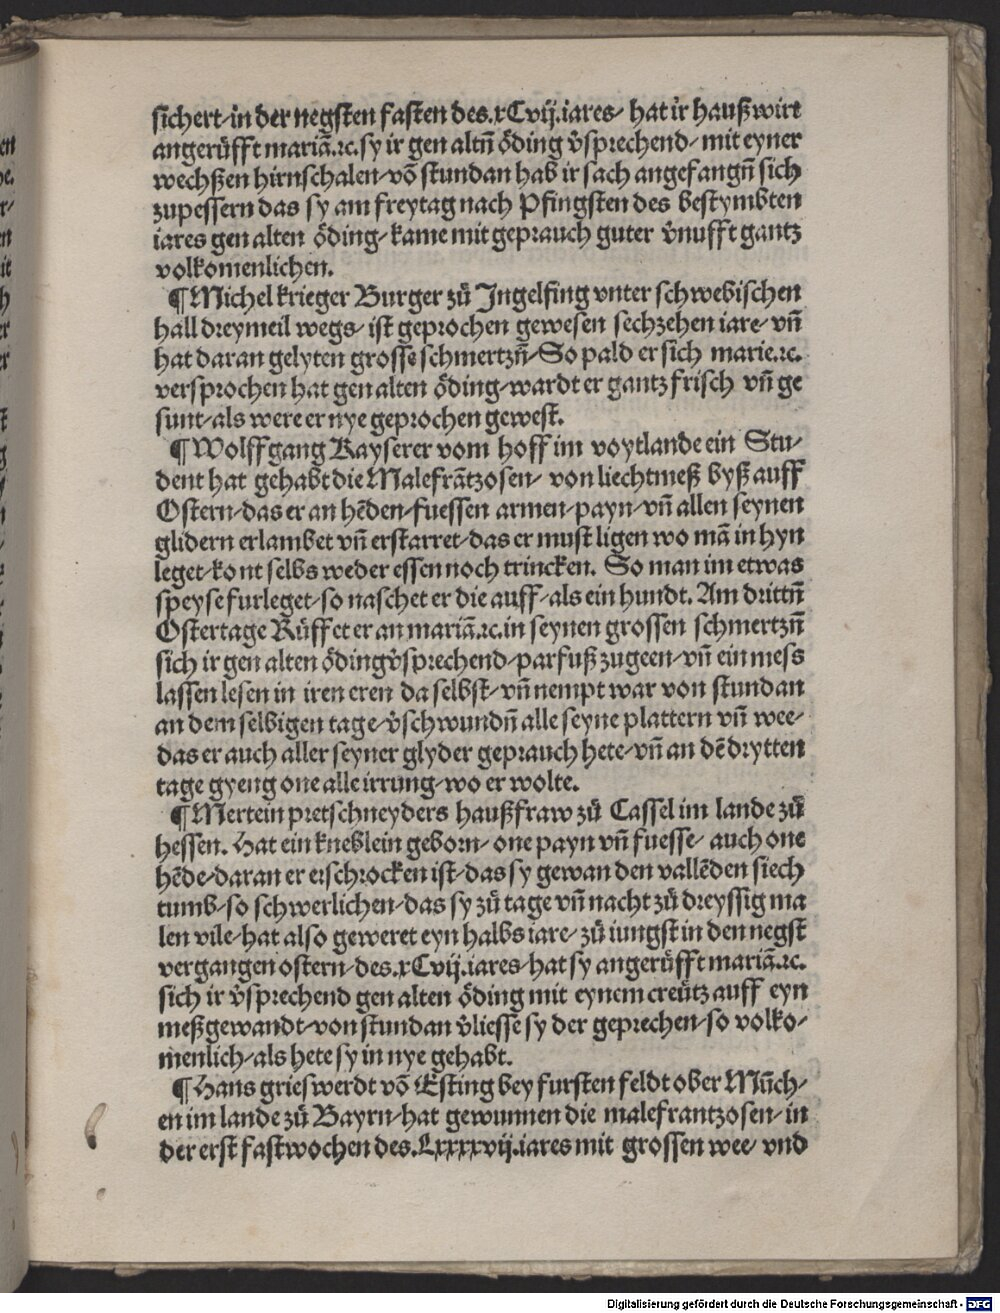 sichert⸗in der negsten fasten des.xCvij.iares⸗ hat ir haußwirt
angerüfft mariā.⁊c.sy ir gen altñ öding v̄sprechend⸗ mit eyner
wechßen hirnschalen⸗vō stundan hab ir sach angefangñ sich
zupessern das sy am freytag nach Pfingsten des bestymbten
iares gen alten öding⸗kame mit geprauch guter v̄nufft gantz
volkomenlichen.
¶Michel krieger Burger zů Ingelfing vnter schwebischen
hall dreymeil wegs⸗ ist geprochen gewesen sechzehen iare⸗ vñ
hat daran gelyten grosse schmertzñ⸗So pald er sich marie.⁊c.
versprochen hat gen alten öding⸗wardt er gantz frisch vñ ge
sunt⸗als were er nye geprochen gewest.
¶Wolffgang Kayserer vom hoff im voytlande ein Stu⸗
dent hat gehabt die Malefrātzosen⸗ von liechtmeß byß auff
Ostern⸗das er an hēden⸗fuessen armen⸗payn⸗vñ allen seynen
glidern erlambet vñ erstarret⸗das er must ligen wo mā in hyn
leget⸗kont selbs weder essen noch trincken. So man im etwas
speyse furleget⸗so naschet er die auff⸗als ein hundt. Am drittñ
Ostertage Rüffet er an mariā.⁊c.in seynen grossen schmertzñ
sich ir gen alten öding v̄sprechend⸗parfuß zugeen⸗vñ ein mess
lassen lesen in iren eren da selbst⸗vñ nempt war von stundan
an dem selbigen tage⸗v̄schwundñ alle seyne plattern vñ wee⸗
das er auch aller seyner glyder geprauch hete⸗vñ an dē drytten
tage gyeng one alle irrung⸗wo er wolte.
¶Mertein pretschneyders haußfraw zů Cassel im lande zů
hessen. Hat ein kneblein geborn⸗ one payn vñ fuesse⸗ auch one
hēde⸗daran er erschrocken ist⸗das sy gewan den vallēden siech
tumb⸗so schwerlichen⸗das sy zů tage vñ nacht zů dreyssig ma
len vile⸗hat also geweret eyn halbs iare⸗ zů iungst in den negst
vergangen ostern⸗des.xCvij.iares⸗hat sy angerüfft mariā.⁊c.
sich ir v̄sprechend gen alten öding mit eynem creütz auff eyn
meßgewandt⸗von stundan v̄liesse sy der geprechen⸗so volko⸗
menlich⸗als hete sy in nye gehabt.
¶Hans grieswerdt vō Esting bey fursten feldt ober Mūch⸗
en im lande zů Bayrn⸗hat gewunnen die malefrantzosen⸗in
der erst fastwochen des.Lxxxxvij.iares mit grossen wee⸗ vnd
Digitalisierung gefördert durch die Deutsche Forschungsgemeinschaft - DFG